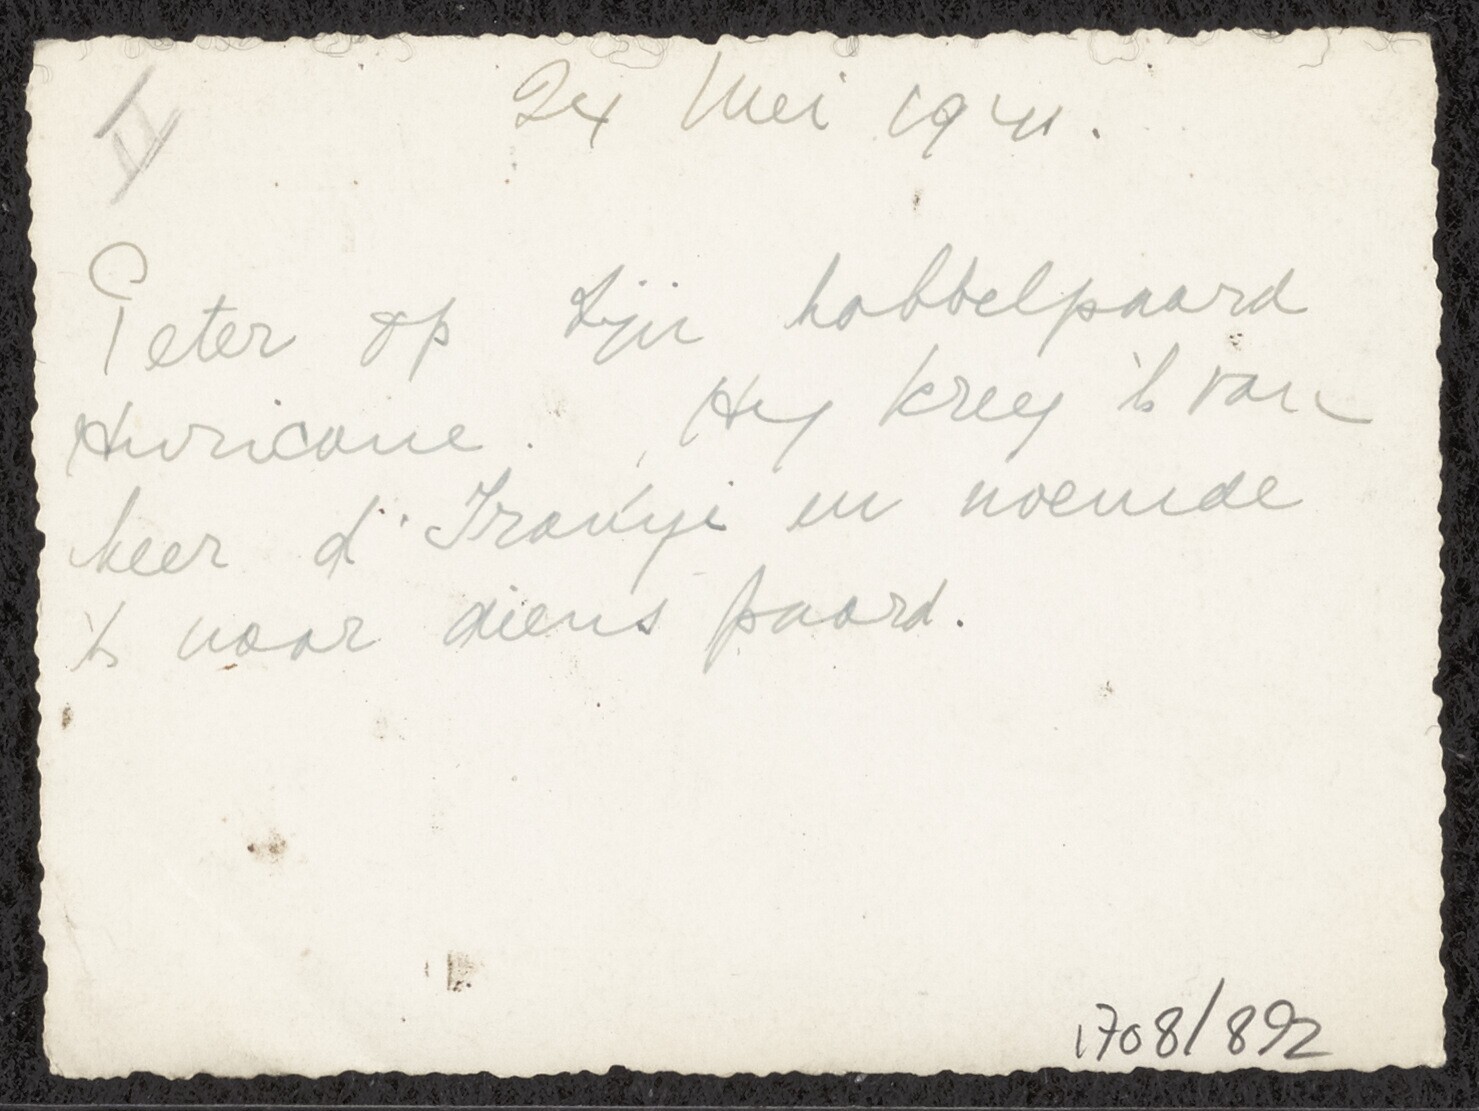 II
24 Mei 1941.
Peter op zijn hobbelpaard
Hurricane. Hij kreeg 't van
heer d'
en noemde
't naar diens paard.
1708/892